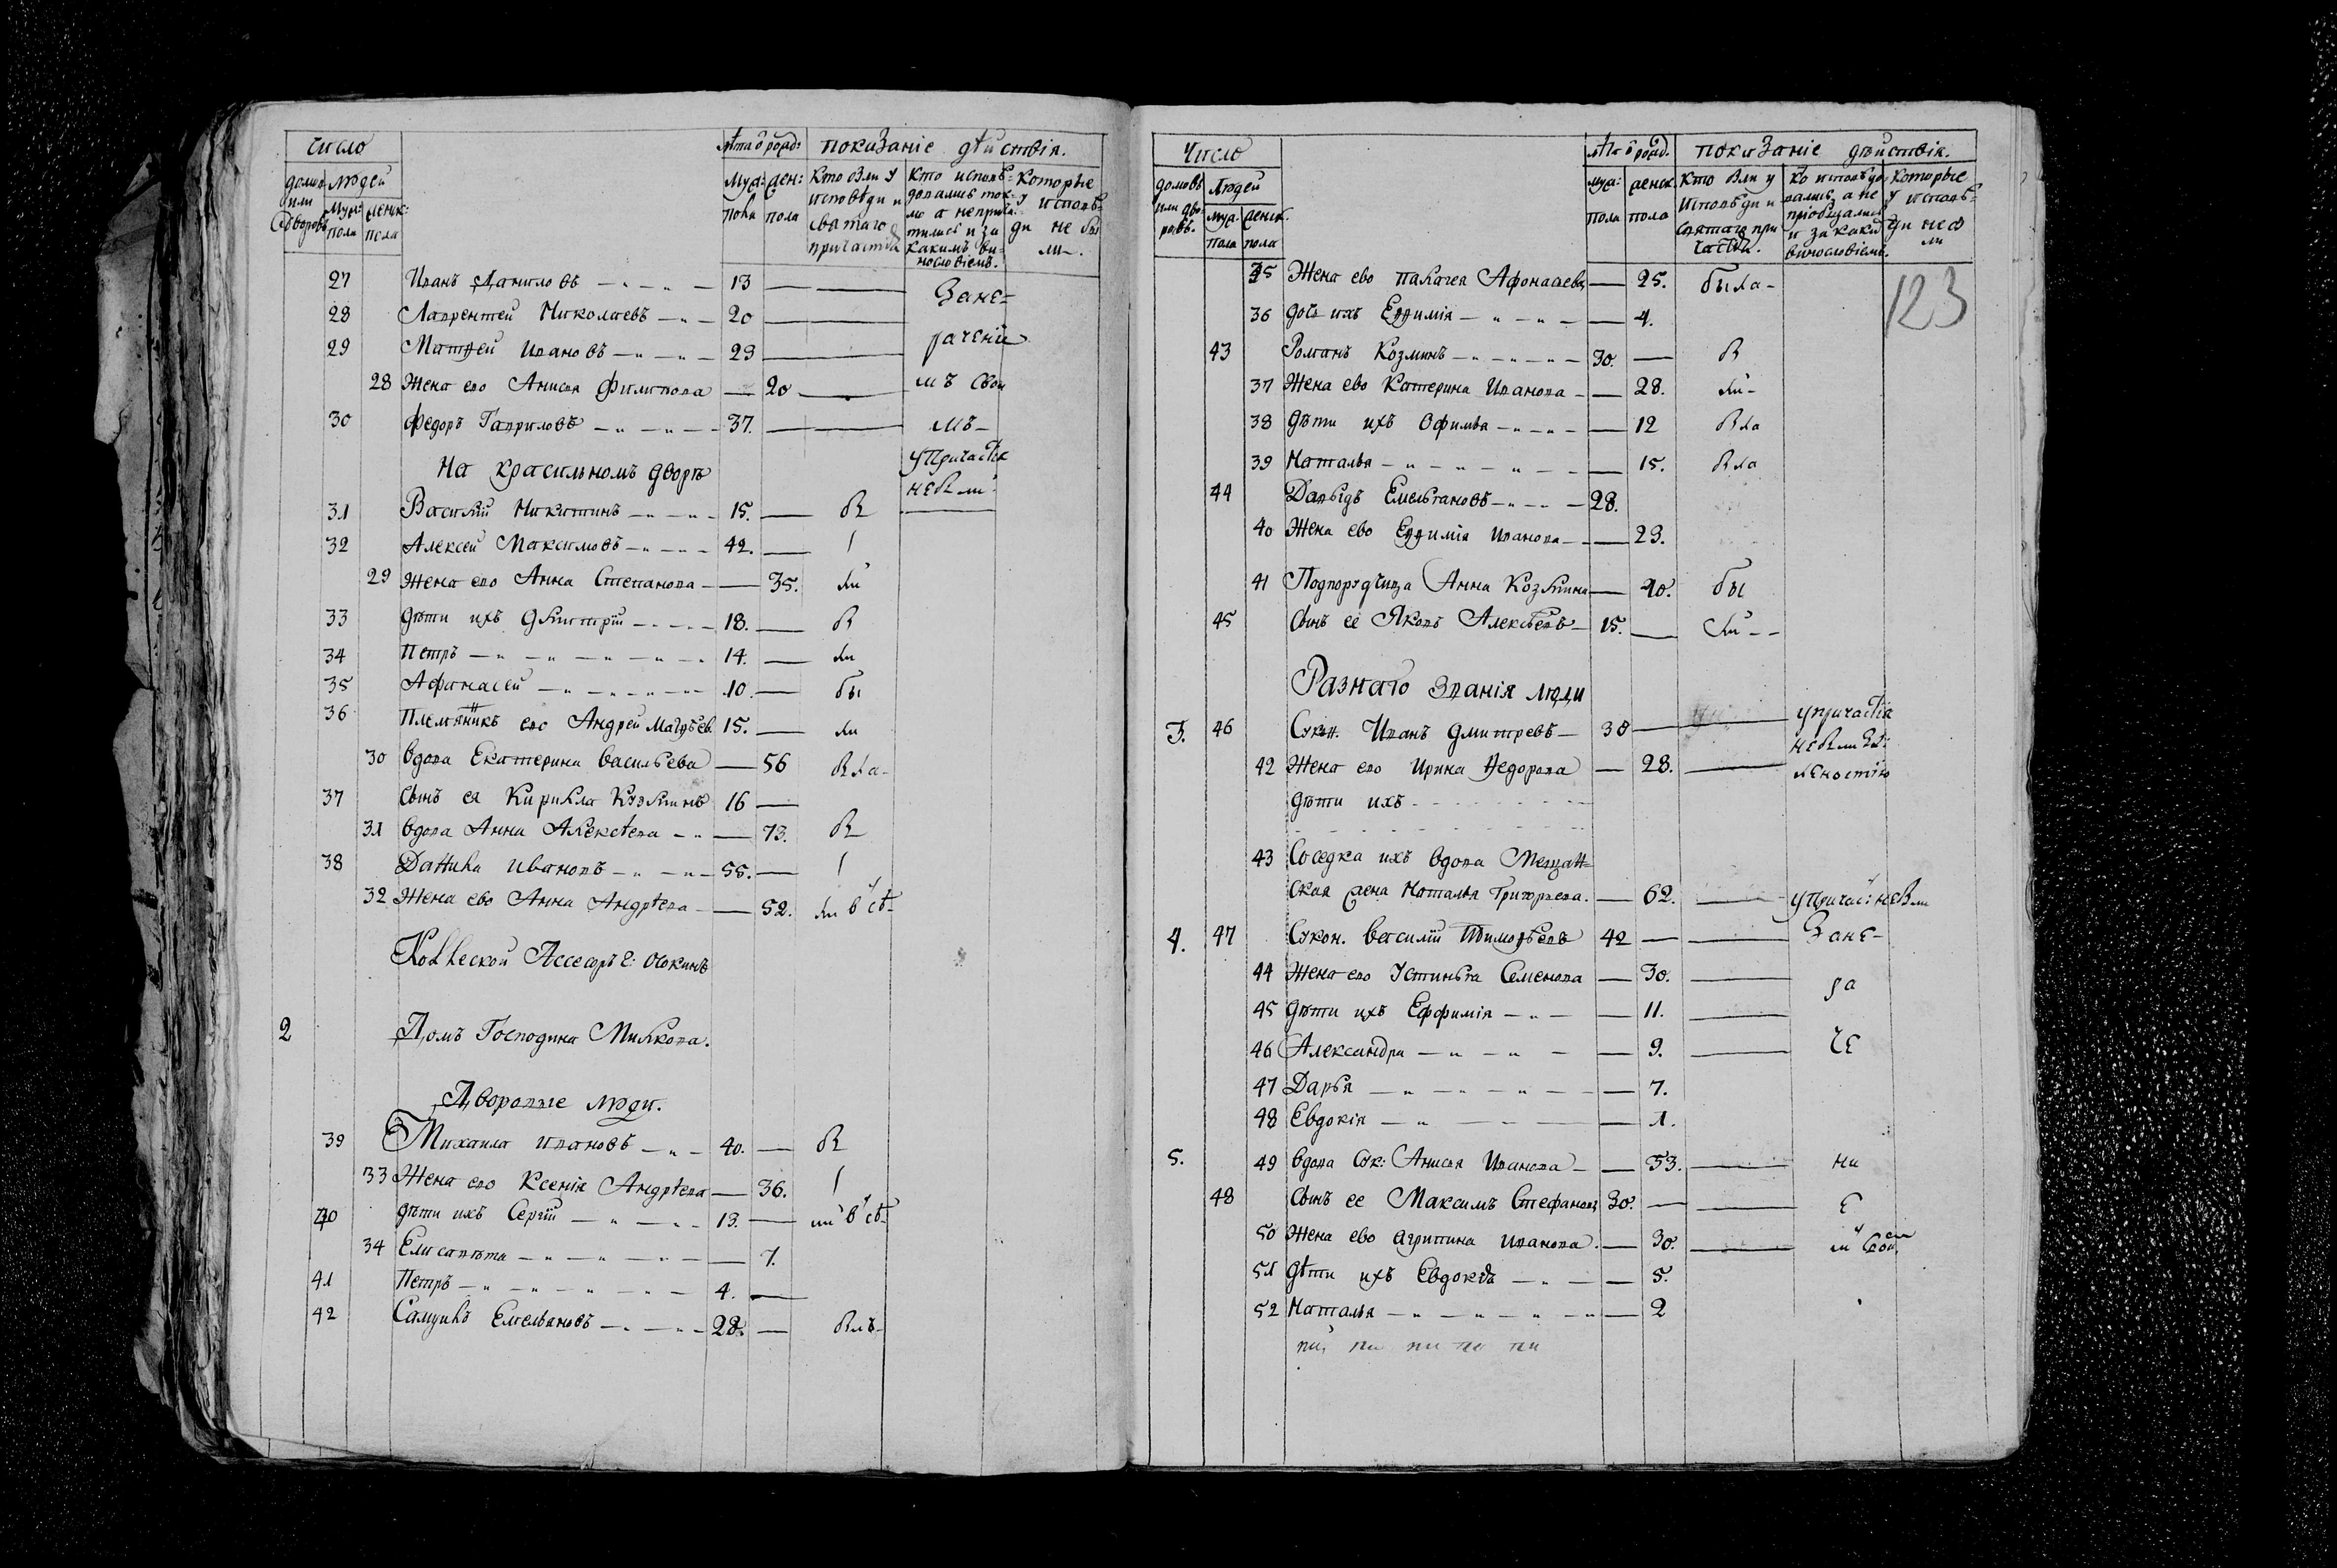 число
лѣта ѿ рожд:
показаніе дѣйствія.
домов или дворовъ
людей
муж: пола
женск: пола
муж: пола
жен: пола
кто были у исповѣди и святаго причастія
кто исповѣдовались токмо а непричастились и за какимъ винословіемъ.
которые у исповѣди не были.
27 Иванъ Даниловъ 13
Зане=
28 Лаврентей Николаевъ 20
29 Матвей Ивановъ 23
раченіе
28 Жена ево Анисья Филипова 20
мъ свои
30 Федоръ Гавриловъ 37.
мъ
На красильномъ дворѣ
у Причастія
небыли
31 Василій Никитинъ 15. бы
32 Алексей Максимовъ 42.
29 Жена ево Анна Степанова 35. ли
33 Дѣти ихъ Дмитрій 18. бы
34 Петръ 14. ли
35 Афанасей 10. бы
36 Племянникъ ево Андрей Матвѣев. 15. ли
30 Вдова Екатерина Васильева 56 была
37 Сынъ ея Кирилла Кузминъ 16
31 Вдова Анна Алексѣева 73. бы
38 Данила Ивановъ 55.
32 Жена ево Анна Андрѣева 52. ли
Коллеской Ассесоръ Г: Осокинъ
2 Домъ Господина Милкова.
Дворовые люди.
39 Михаила Ивановъ 40. бы
33 Жена ево Ксенія Андрѣева 36.
40 дѣти ихъ Сергій 13. ли
34 Елисавѣта 7.
41 Петръ 4.
42 Самуилъ Емельяновъ 28. былъ
Число
лѣта ѿ рожд.
показаніе дѣйствія.
домовъ или дворовъ.
Людей
муж. пола
женск. пола
муж: пола
женск. пола
кто были у исповѣди и святаго причастія.
ко исповѣдовались, а не пріобщались и за каким винословіемъ.
которые у исповѣди не были
123
35 Жена ево Палагея Афонасева 25. была
36 дочь ихъ Евфимія 4.
43 Романъ Козминъ 30. бы
37 Жена ево Катерина Иванова 28. ли
38 Дѣти ихъ Офимья 12 была
39 Наталья 15. была
44 Давыдъ Емельяновъ 28.
40 Жена ево Евфимія Иванова 23.
41 Подпоручица Анна Козмина 40. бы
45 Сынъ её Яковъ Алексѣевъ 15. ли
Разнаго званія люди
3. 46 Сукн. Иванъ Дмитревъ 38
упричастія
42 Жена ево Ирина Федорова 28.
небыли за
леностію
дѣти ихъ
43 Соседка ихъ Вдова Мещан=
ская жена Наталья Григорьева. 62. упричас: небыли
4. 47 Сукон. Василій Тимофѣевъ 42 Зане-
44 Жена ево Устинья Семенова 30. ра
45 дѣти ихъ Еффимія 11.
46 Александра 9. че
47 Дарья 7.
48 Евдокія 1.
5. 49 Вдова Сук: Анисья Иванова 53. ни
48 Сынъ ее Максимъ Стефановъ 30. е
50 Жена ево Агрипина Иванова. 30.
51 Дѣти ихъ Евдокія 5.
52 Наталья 2